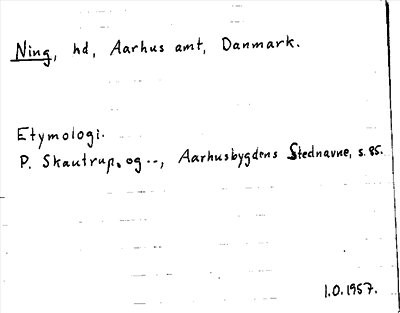 Ning, hd, Aarhus amt, Danmark.
Etymologi.
P. Skautrup. og --, Aarhusbygdens Stednavne, s. 85.
1.0.1957.